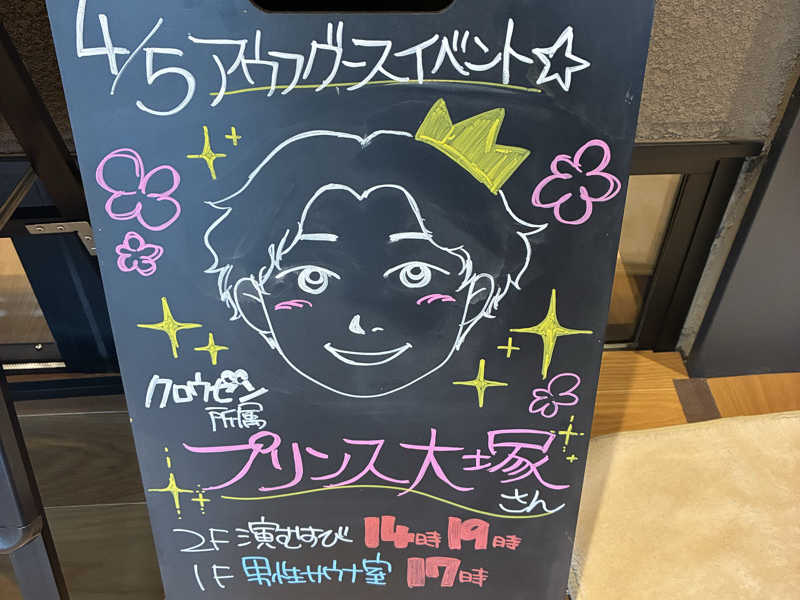 4/5 アウフグースイベント☆
クロウゼン
所属
プリンス大塚
さん
2F 演むすび 14時 19時
1F 男性サウナ室 17時